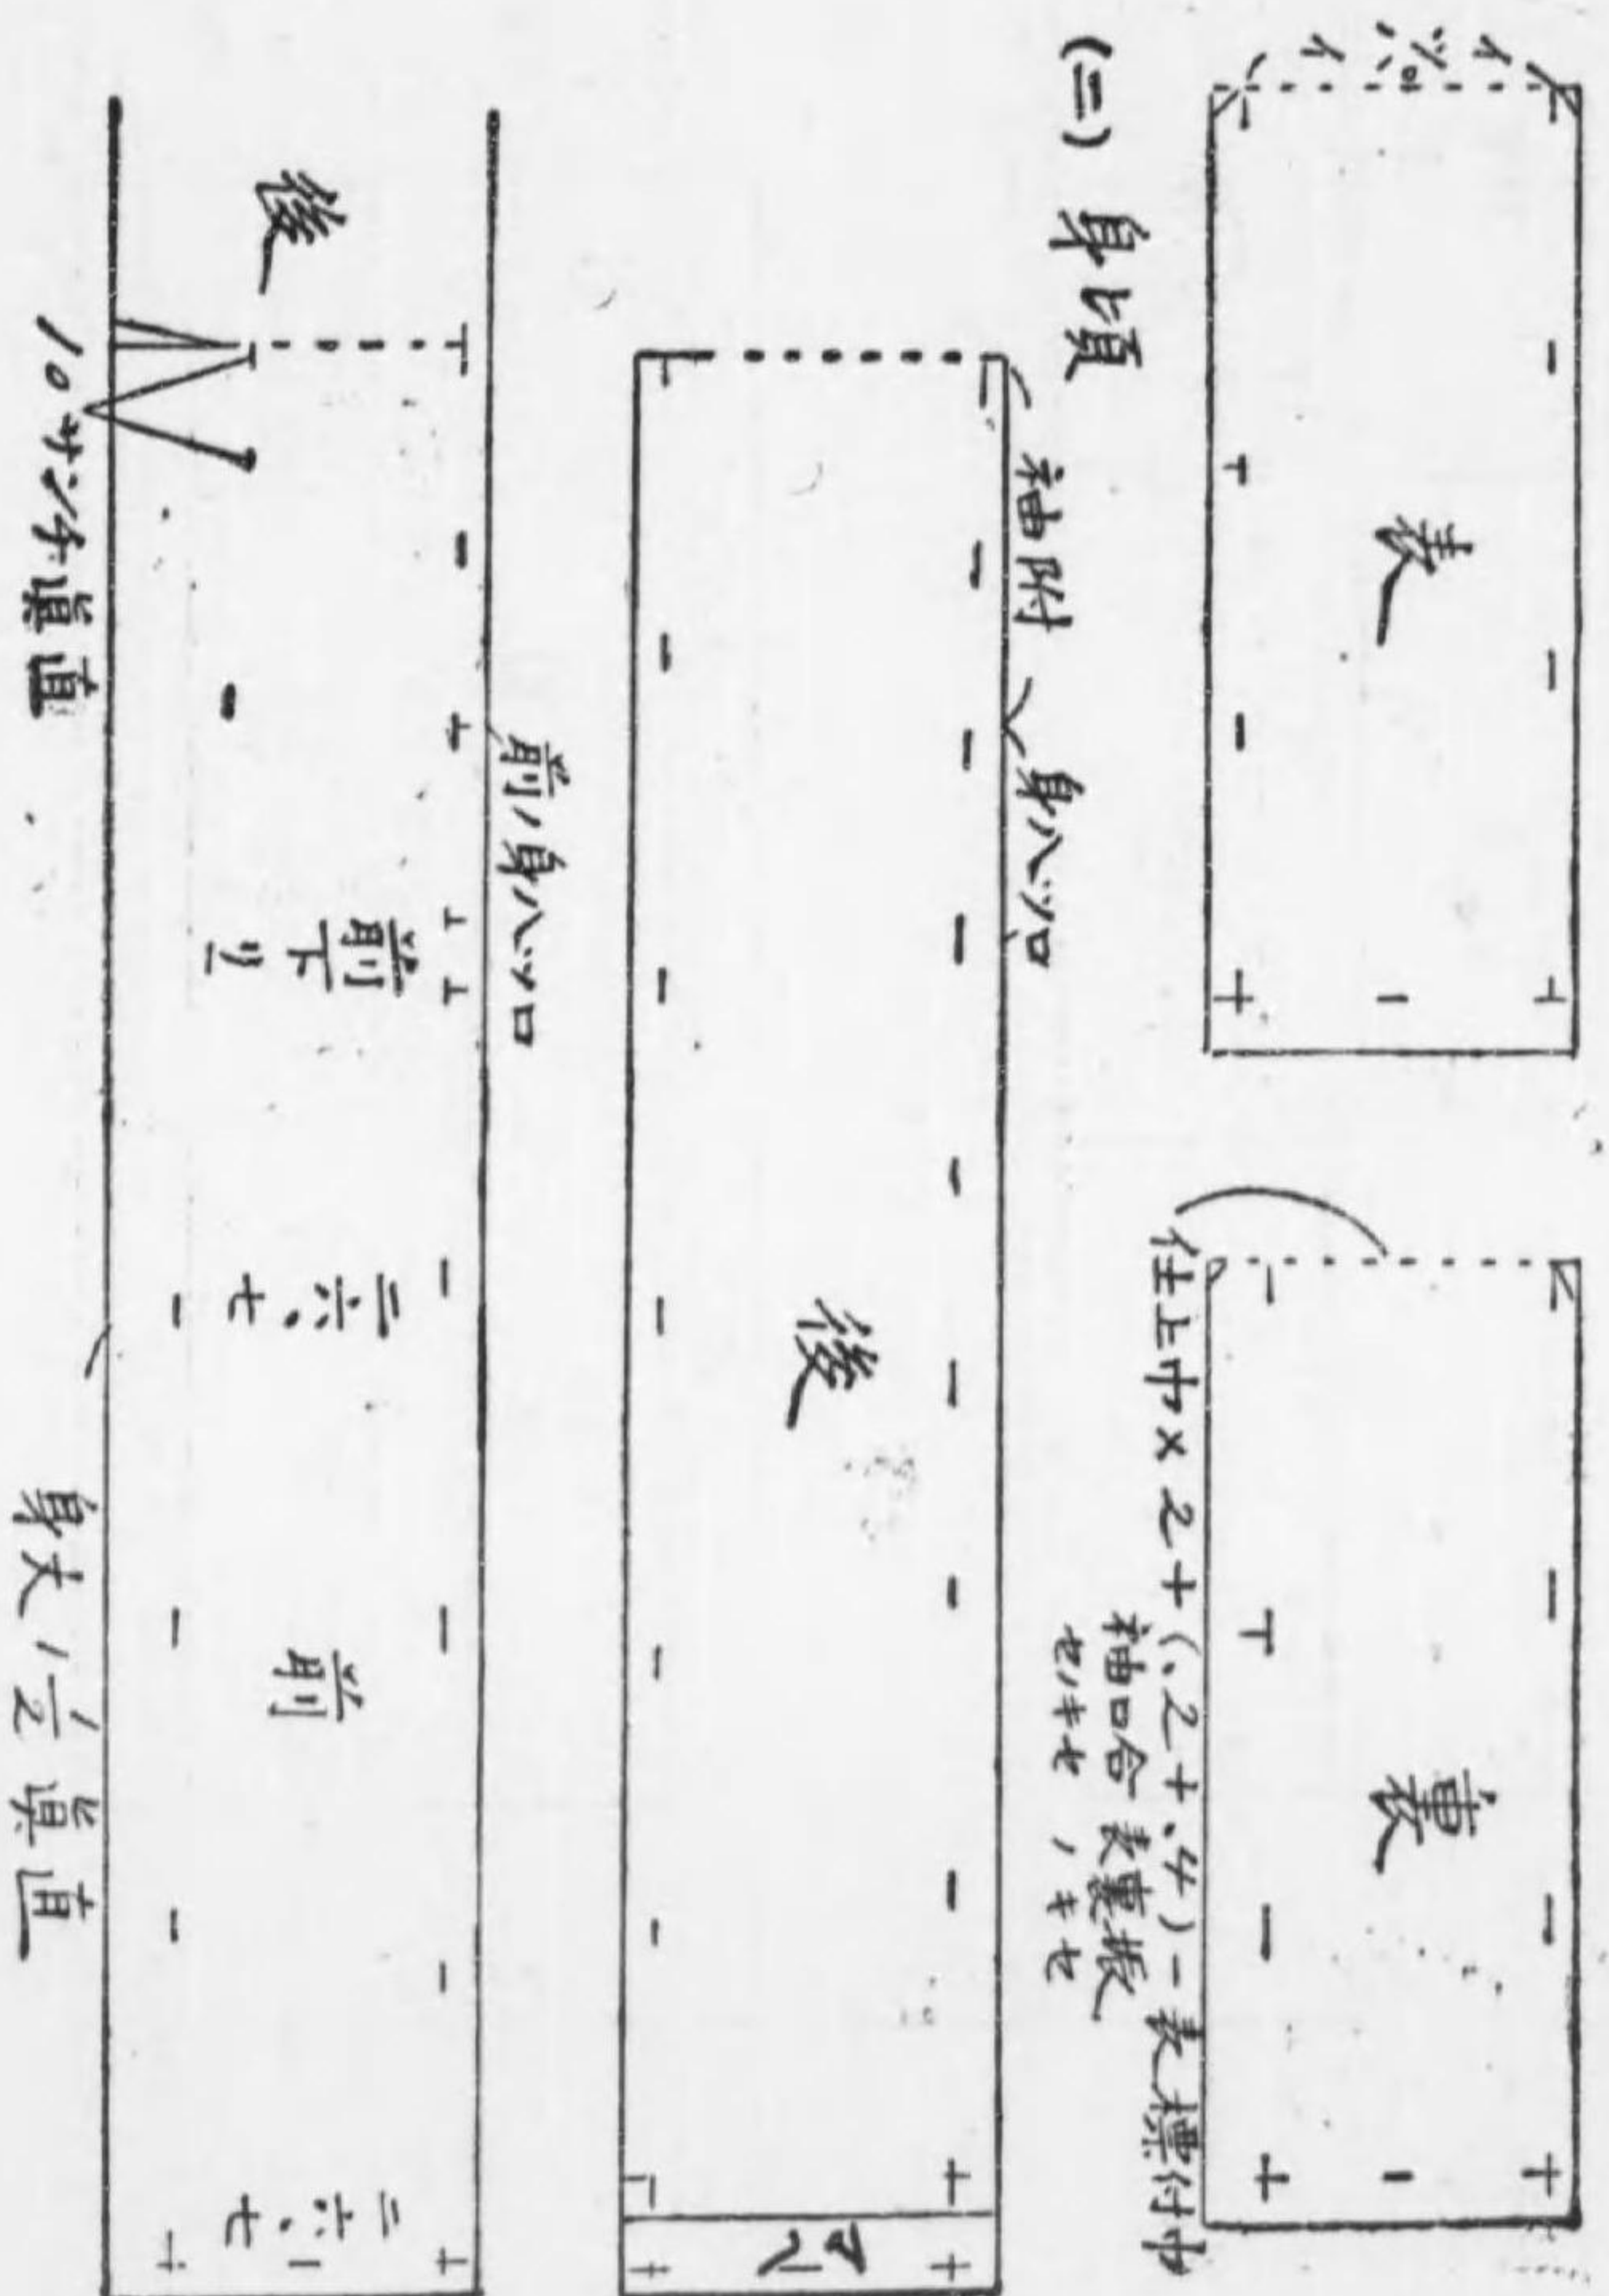 表
裏
仕上巾×2+(.2+.4)−表標付巾
袖口合 表裏振
セノキセ ノキセ
(二) 身頃
袖附
身八ツ口
後
前ノ身八ツ口
後
前下リ
二六、七
前
二六、七
10サンチ眞直
身丈1/2眞直